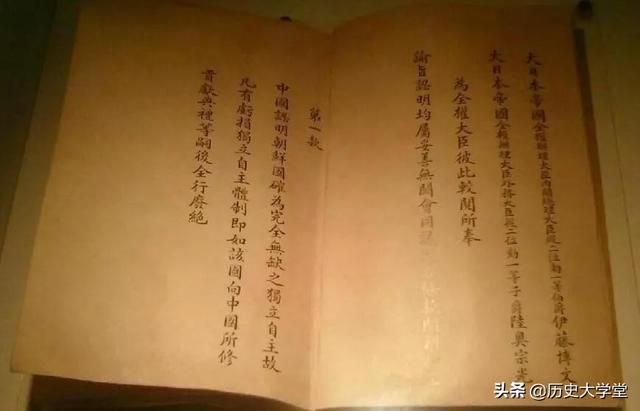 大日本帝國全權辦理大臣內閣總理大臣從二位勳一等伯爵伊藤博文
大日本帝國全權辦理大臣外務大臣從二位勳一等子爵陸奧宗光
為全權大臣彼此較閱所奉
諭旨認明均屬妥善無闕會同
第一款
中國認明朝鮮國確為完全無缺之獨立自主故
凡有虧損獨立自主體制即如該國向中國所修
貢獻典禮等嗣後全行廢絕
头条 @历史大学堂